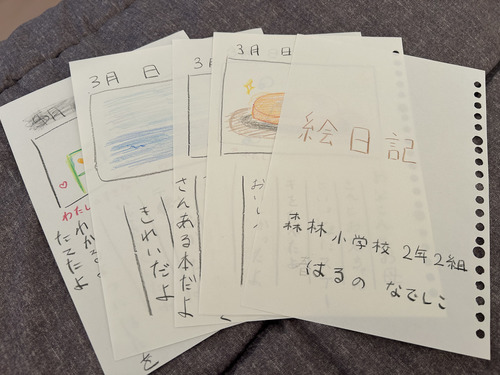 絵日記
森林小学校 2年2組
はるの なでしこ
3月 日
おいし
3月
さんある本だよ
3月 日
きれいだよ
月
わたし
たてたよ
を